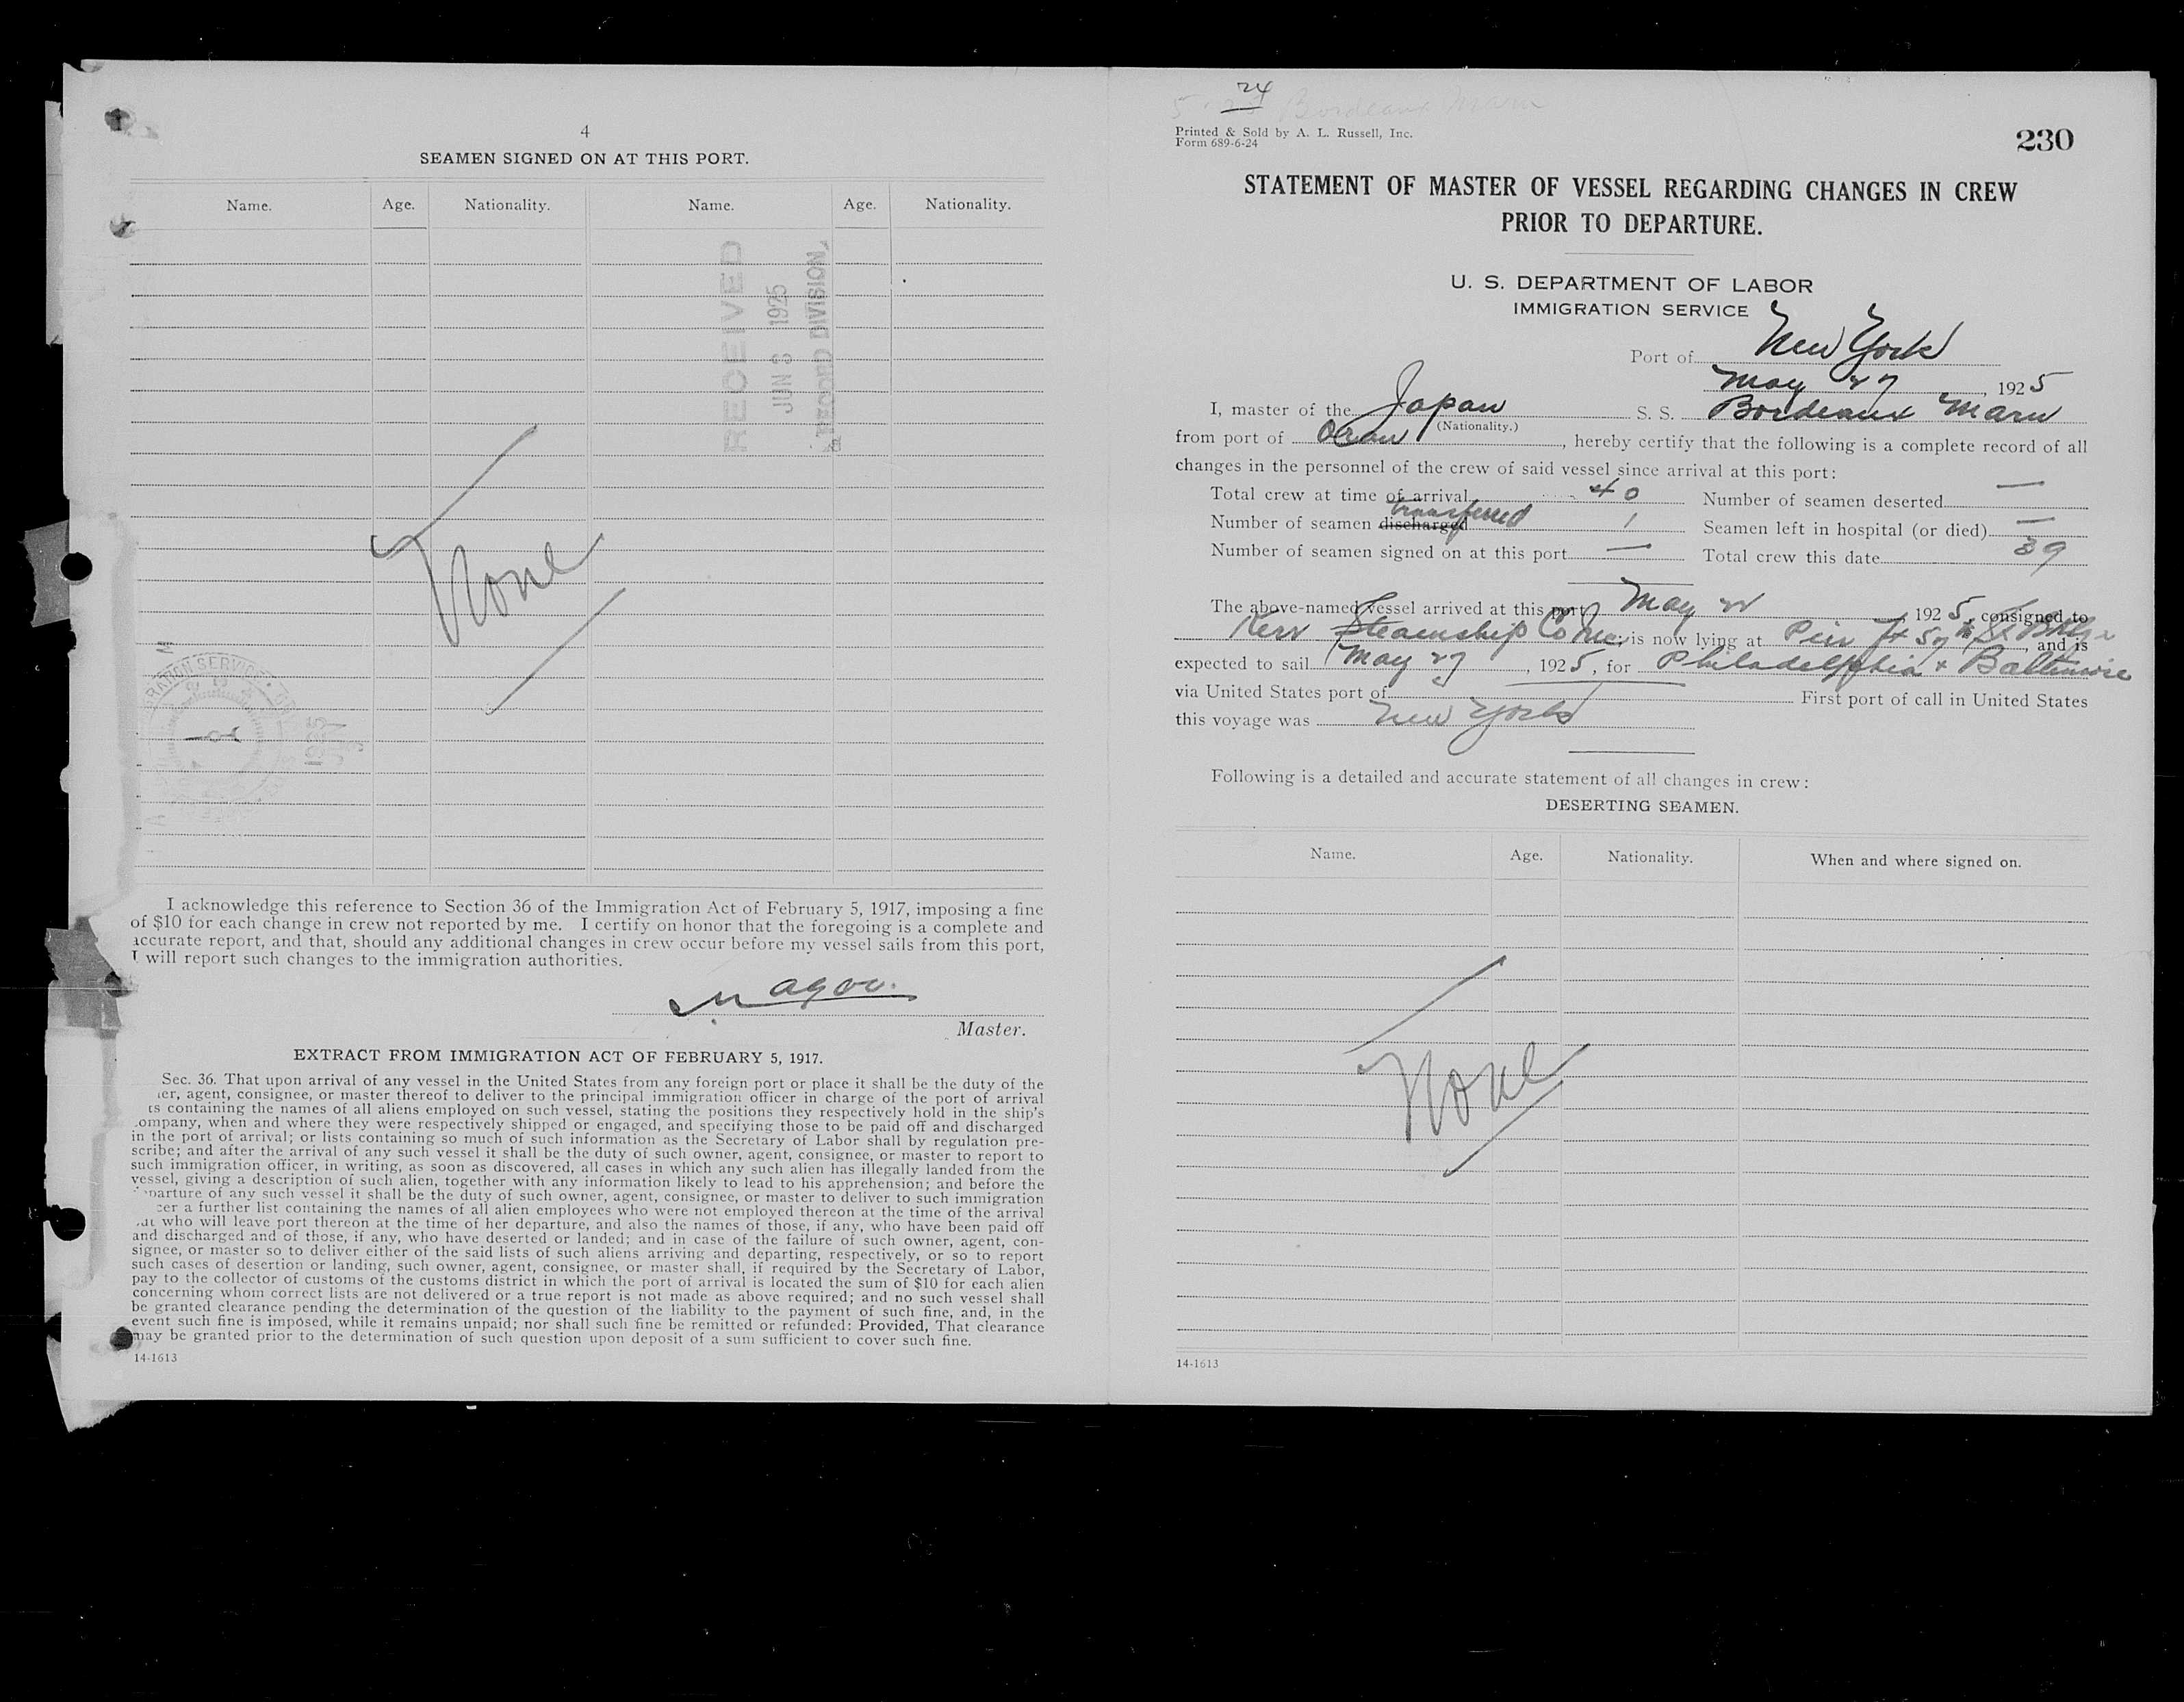 4
SEAMEN SIGNED ON AT THIS PORT.
Name. Age. Nationality. Name. Age. Nationality.
RECEIVED
JUN 3 1925
RECORD DIVISION
None
1925
I acknowledge this reference to Section 36 of the Immigration Act of February 5, 1917, imposing a fine
of $10 for each change in crew not reported by me. I certify on honor that the foregoing is a complete and
accurate report, and that, should any additional changes in crew occur before my vessel sails from this port,
I will report such changes to the immigration authorities.
Master.
EXTRACT FROM IMMIGRATION ACT OF FEBRUARY 5, 1917.
Sec. 36. That upon arrival of any vessel in the United States from any foreign port or place it shall be the duty of the
er, agent, consignee, or master thereof to deliver to the principal immigration officer in charge of the port of arrival
ts containing the names of all aliens employed on such vessel, stating the positions they respectively hold in the ship's
ompany, when and where they were respectively shipped or engaged, and specifying those to be paid off and discharged
in the port of arrival; or lists containing so much of such information as the Secretary of Labor shall by regulation pre-
scribe; and after the arrival of any such vessel it shall be the duty of such owner, agent, consignee, or master to report to
such immigration officer, in writing, as soon as discovered, all cases in which any such alien has illegally landed from the
vessel, giving a description of such alien, together with any information likely to lead to his apprehension; and before the
parture of any such vessel it shall be the duty of such owner, agent, consignee, or master to deliver to such immigration
cer a further list containing the names of all alien employees who were not employed thereon at the time of the arrival
ut who will leave port thereon at the time of her departure, and also the names of those, if any, who have been paid off
and discharged and of those, if any, who have deserted or landed; and in case of the failure of such owner, agent, con-
signee, or master so to deliver either of the said lists of such aliens arriving and departing, respectively, or so to report
such cases of desertion or landing, such owner, agent, consignee, or master shall, if required by the Secretary of Labor,
pay to the collector of customs of the customs district in which the port of arrival is located the sum of $10 for each alien
concerning whom correct lists are not delivered or a true report is not made as above required; and no such vessel shall
be granted clearance pending the determination of the question of the liability to the payment of such fine, and, in the
event such fine is imposed, while it remains unpaid; nor shall such fine be remitted or refunded: Provided, That clearance
may be granted prior to the determination of such question upon deposit of a sum sufficient to cover such fine.
14-1613
24
Bordeaux Maru
Printed & Sold by A. L. Russell, Inc.
Form 689-6-24
230
STATEMENT OF MASTER OF VESSEL REGARDING CHANGES IN CREW
PRIOR TO DEPARTURE.
U. S. DEPARTMENT OF LABOR
IMMIGRATION SERVICE
Port of New York
May 27, 1925
I, master of the Japan S. S. Bordeaux Maru
(Nationality.)
from port of , hereby certify that the following is a complete record of all
changes in the personnel of the crew of said vessel since arrival at this port:
Total crew at time of arrival 40 Number of seamen deserted —
Number of seamen discharged transferred 1 Seamen left in hospital (or died) —
Number of seamen signed on at this port — Total crew this date 39
The above-named vessel arrived at this port May 22, 1925, consigned to
Kerr Steamship Co Inc; is now lying at Pier Ft 57th St Bklyn, and is
expected to sail May 27, 1925, for Philadelphia & Baltimore
via United States port of First port of call in United States
this voyage was New York
Following is a detailed and accurate statement of all changes in crew:
DESERTING SEAMEN.
Name. Age. Nationality. When and where signed on.
None
14-1613